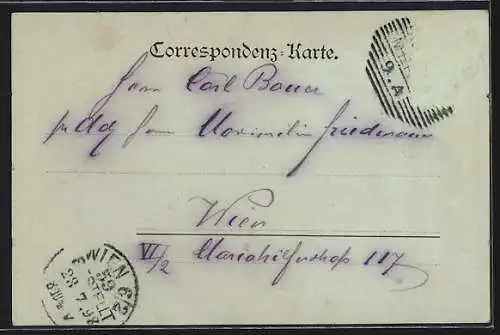 Correspondenz-Karte.
Herrn Carl Bauer
Herrn Maximilian Friedmann
Wien
VI/2 Mariahilferstraße 117
9. 4
WIEN 6/2
59
BESTELLT
23 7 97